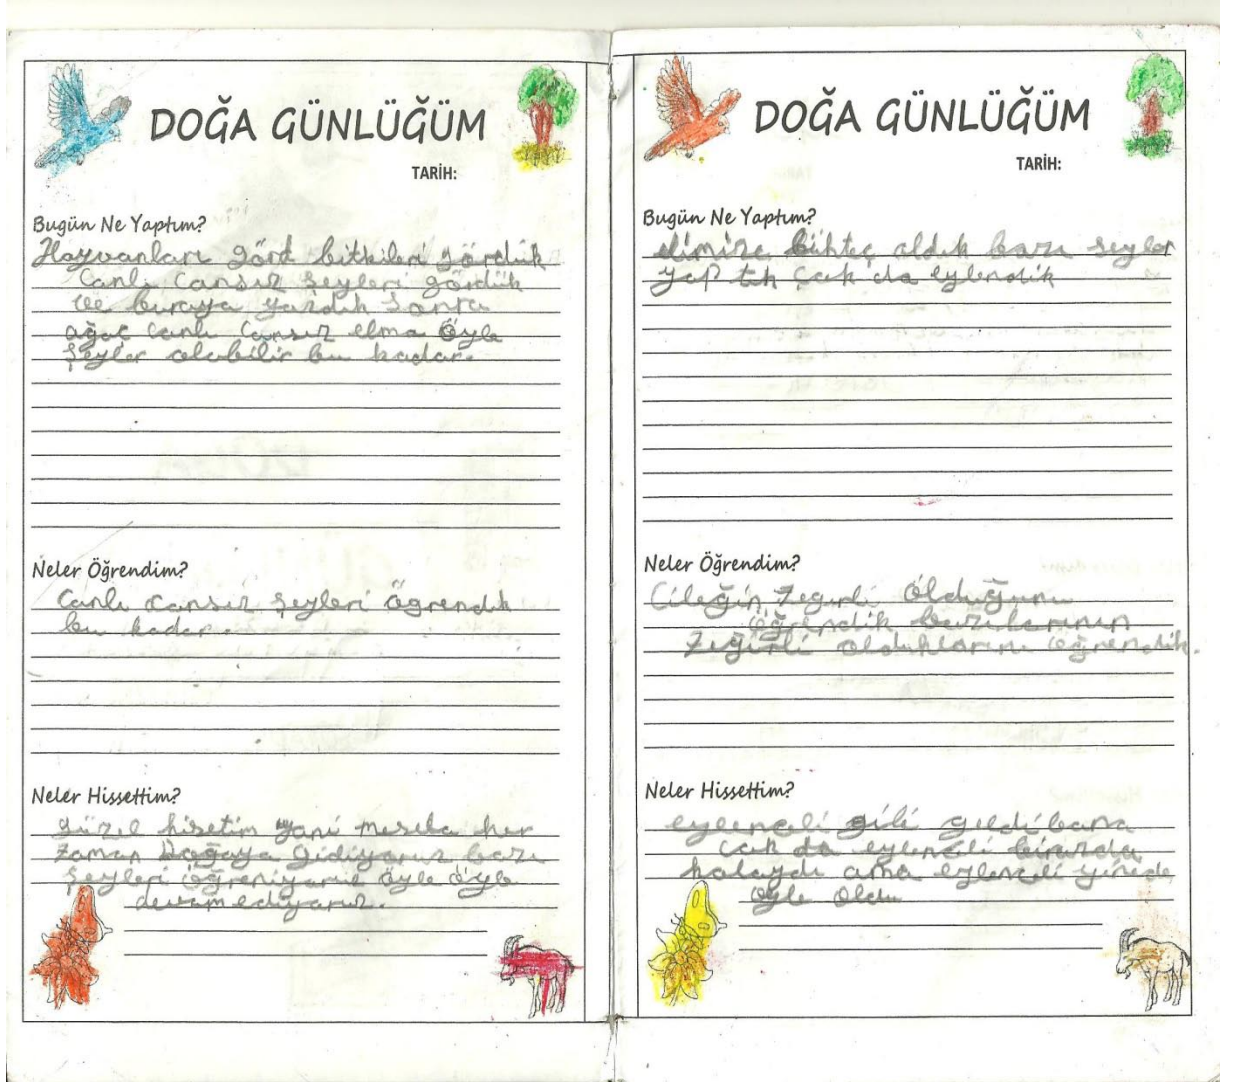 DOĞA GÜNLÜĞÜM
TARİH:
Bugün Ne Yaptım?
Hayvanları görd bitkileri gördük
Canlı Cansız şeyleri gördük
ve buraya yazdık sonra
ağaç canlı Cansız elma öyle
şeyler olabilir bu kadar.
Neler Öğrendim?
Canlı cansız şeyleri ögrendik
bu kadar.
Neler Hissettim?
güzel hisetim yani mesela her
zaman Doğaya gidiyoruz bazı
şeyleri öğreniyoruz öyle öyle
devam ediyoruz.
DOĞA GÜNLÜĞÜM
TARİH:
Bugün Ne Yaptım?
elimize aldık bazı şeyler
yap tık çok da eylendik
Neler Öğrendim?
Cileğin zegirli olduğunu
öğrendik bazılarının
zeğirli olduklarını öğrendik.
Neler Hissettim?
eylenceli gibi geldi bana
çok da eylenceli birazda
kolaydı ama eylenceli yinede
öyle oldu